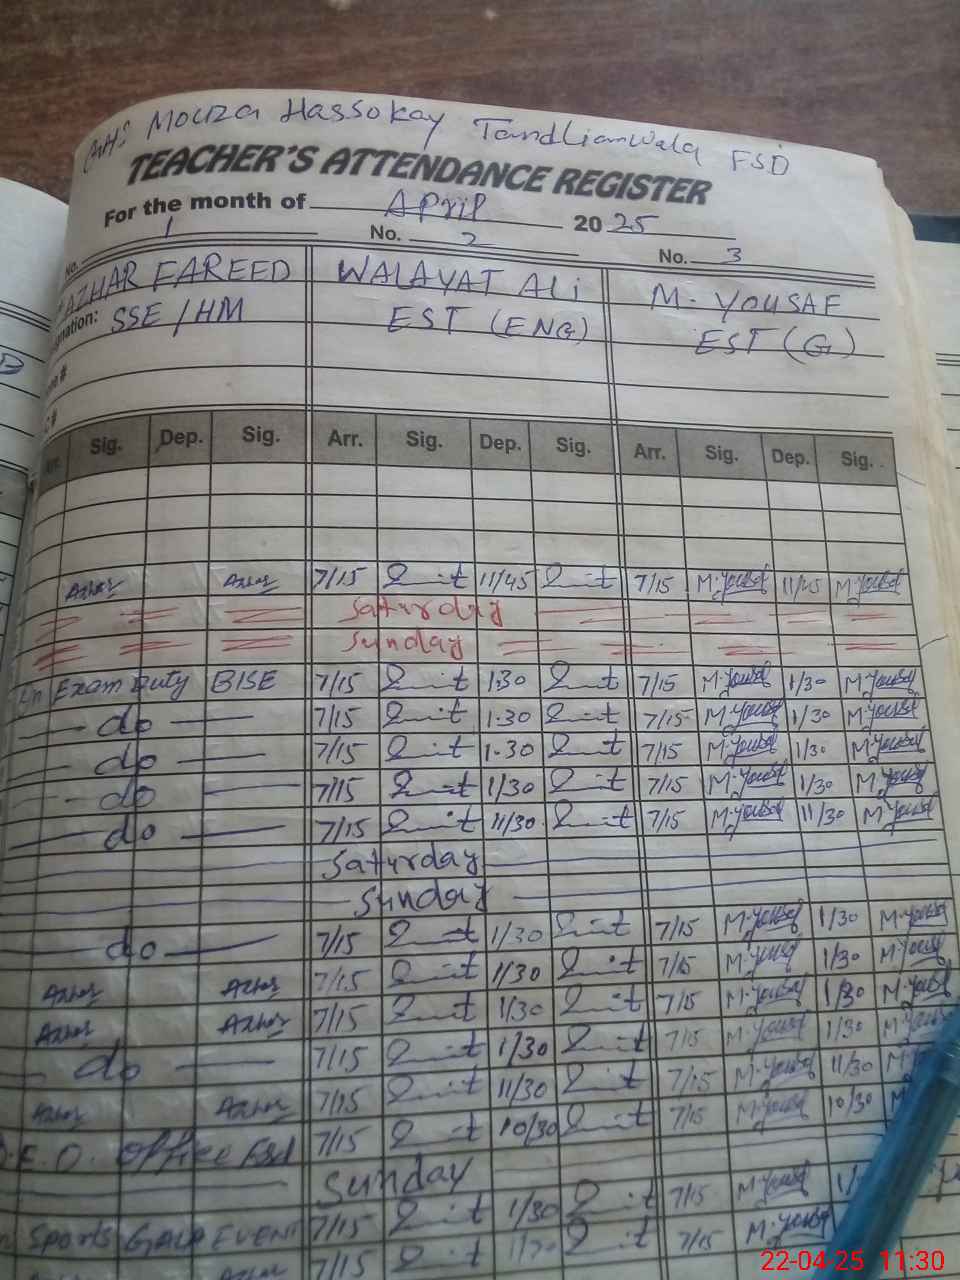 Mouza Hassokay Tandlianwala FSD
TEACHER'S ATTENDANCE REGISTER
For the month of April 2025
No. 1 No. 2 No. 3
AZHAR FAREED WALAYAT ALi M. YOUSAF
SSE / HM EST (ENG) EST (G)
Sig. Dep. Sig. Arr. Sig. Dep. Sig. Arr. Sig. Dep. Sig.
Azhar Azhar 7/15 11/45 7/15 M.Yousaf 11/45 M.Yousaf
Saturday
Sunday
On Exam Duty BISE 7/15 1.30 7/15 M.Yousaf 1/30 M.Yousaf
do 7/15 1.30 7/15 M.Yousaf 1/30 M.Yousaf
do 7/15 1.30 7/15 M.Yousaf 1/30 M.Yousaf
do 7/15 1/30 7/15 M.Yousaf 1/30 M.Yousaf
do 7/15 11/30 7/15 M.Yousaf 11/30 M.Yousaf
Saturday
Sunday
do 7/15 1/30 7/15 M.Yousaf 1/30 M.Yousaf
Azhar Azhar 7/15 1/30 7/15 M.Yousaf 1/30 M.Yousaf
Azhar Azhar 7/15 1/30 7/15 M.Yousaf 1/30 M.Yousaf
do 7/15 1/30 7/15 M.Yousaf 1/30 M.Yousaf
Azhar Azhar 7/15 11/30 7/15 M.Yousaf 11/30
D.E.O. Office Fsd 7/15 10/30 7/15 M.Yousaf 10/30
Sunday
Sports GALA EVENT 7/15 1/30 7/15 M.Yousaf
7/15 7/15 M.Yousaf
22-04-25 11:30